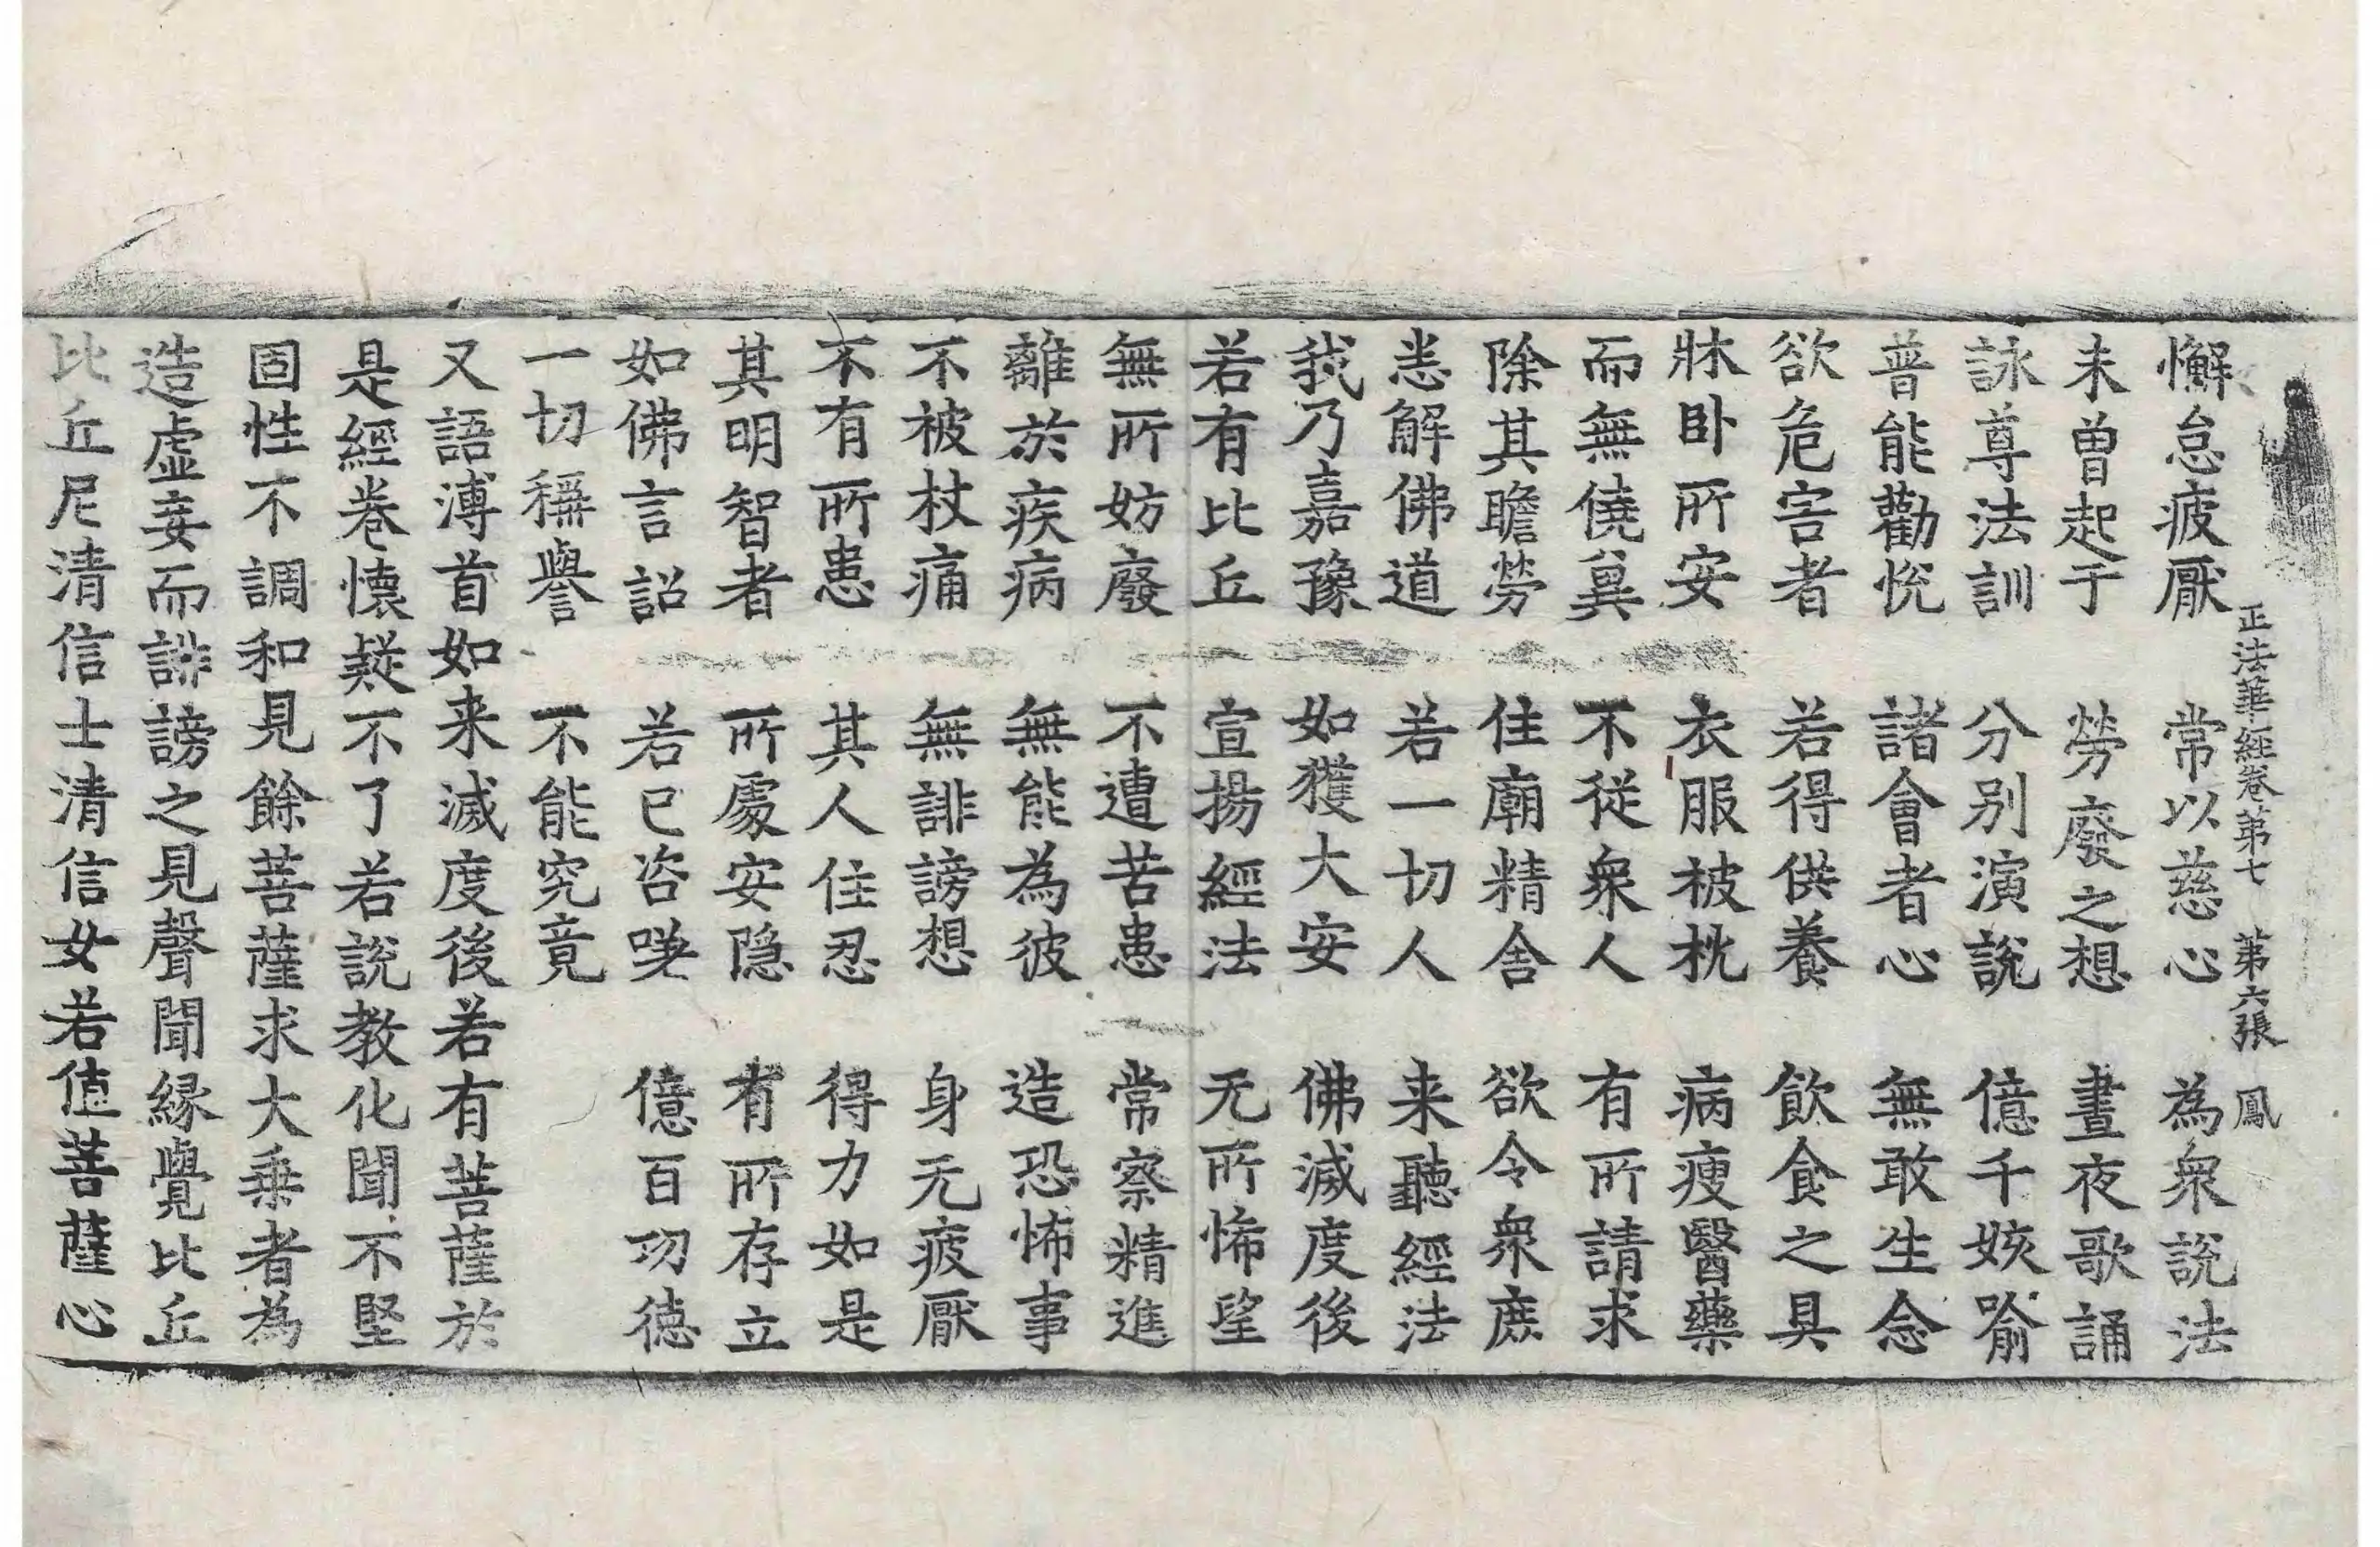 正法華經卷第七 第六張 鳳
懈怠疲厭 常以慈心 為衆說法
未曽起于 勞廢之想 晝夜歌誦
詠尊法訓 分別演說 億千姟喻
普能勸恱 諸會者心 無敢生念
欲危害者 若得供養 飲食之具
牀卧所安 衣服被枕 病瘦醫藥
而無僥兾 不從衆人 有所請求
除其瞻勞 住廟精舎 欲令衆庶
悉解佛道 若一切人 来聽經法
我乃嘉豫 如獲大安 佛滅度後
若有比丘 宣揚經法 无所悕望
無所妨廢 不遭苦患 常察精進
離於疾病 無能為彼 造恐怖事
不被杖痛 無誹謗想 身无疲厭
不有所患 其人住忍 得力如是
其明智者 所處安隐 有所存立
如佛言詔 若已咨嗟 億百功德
一切稱譽 不能究竟
又語溥首如来滅度後若有菩薩於
是經卷懷疑不了若說教化聞不堅
固性不調和見餘菩薩求大乗者為
造虛妄而誹謗之見聲聞緣覺比丘
比丘尼清信士清信女若值菩薩心